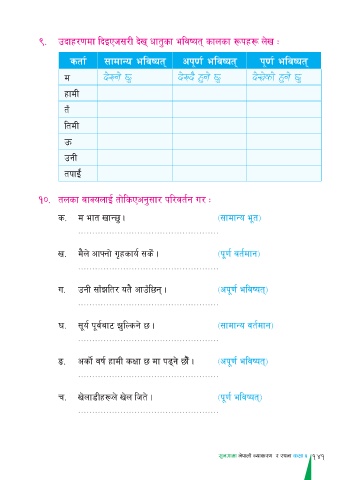 ९. उदाहरणमा दिइएजसरी देख् धातुका भविष्यत् कालका रूपहरू लेख :
कर्ता सामान्य भविष्यत् अपूर्ण भविष्यत् पूर्ण भविष्यत्
म देख्ने छु देख्दै हुने छु देखेको हुने छु
हामी
तँ
तिमी
ऊ
उनी
तपाईं
१०. तलका वाक्यलाई तोकिएअनुसार परिवर्तन गर :
क. म भात खान्छु । (सामान्य भूत)
ख. मैले आफ्नो गृहकार्य सकेँ । (पूर्ण वर्तमान)
ग. उनी साँझतिर यतै आउँछिन् । (अपूर्ण भविष्यत्)
घ. सूर्य पूर्वबाट झुल्किने छ । (सामान्य वर्तमान)
ङ. अर्को वर्ष हामी कक्षा छ मा पढ्ने छौँ । (अपूर्ण भविष्यत्)
च. खेलाडीहरूले खेल जिते । (पूर्ण भविष्यत्)
नेपाली व्याकरण र रचना कक्षा ५ १४१